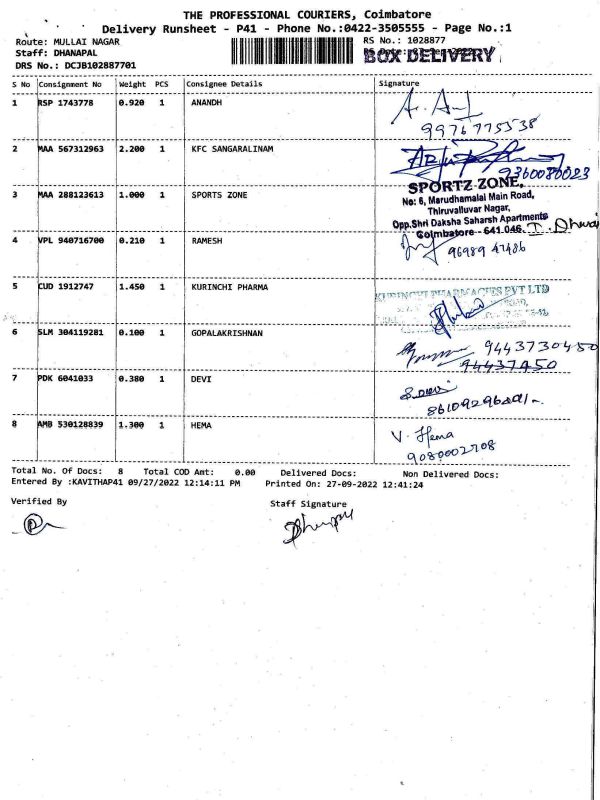 THE PROFESSIONAL COURIERS, Coimbatore
Delivery Runsheet - P41 - Phone No.:0422-3505555 - Page No.:1
Route: MULLAI NAGAR
Staff: DHANAPAL
DRS No.: DCJB102887701
RS No.: 1028877
BOX DELIVERY
S No Consignment No Weight PCS Consignee Details Signature
1 RSP 1743778 0.920 1 ANANDH
9976775538
2 MAA 567312963 2.200 1 KFC SANGARALINAM
9360080023
3 MAA 288123613 1.000 1 SPORTS ZONE
SPORTZ ZONE,
No: 6, Marudhamalai Main Road,
Thiruvalluvar Nagar,
Opp.Shri Daksha Saharsh Apartments
Coimbatore - 641 046.
4 VPL 940716700 0.210 1 RAMESH
96989 47486
5 CUD 1912747 1.450 1 KURINCHI PHARMA
KURINCHI PHARMACIES PVT LTD
6 SLM 304119281 0.100 1 GOPALAKRISHNAN
9443730450
7 PDK 6041033 0.380 1 DEVI
S.Devi
8 AMB 530128839 1.300 1 HEMA
V. Hema
9080002708
Total No. Of Docs: 8 Total COD Amt: 0.00 Delivered Docs: Non Delivered Docs:
Entered By :KAVITHAP41 09/27/2022 12:14:11 PM Printed On: 27-09-2022 12:41:24
Verified By Staff Signature